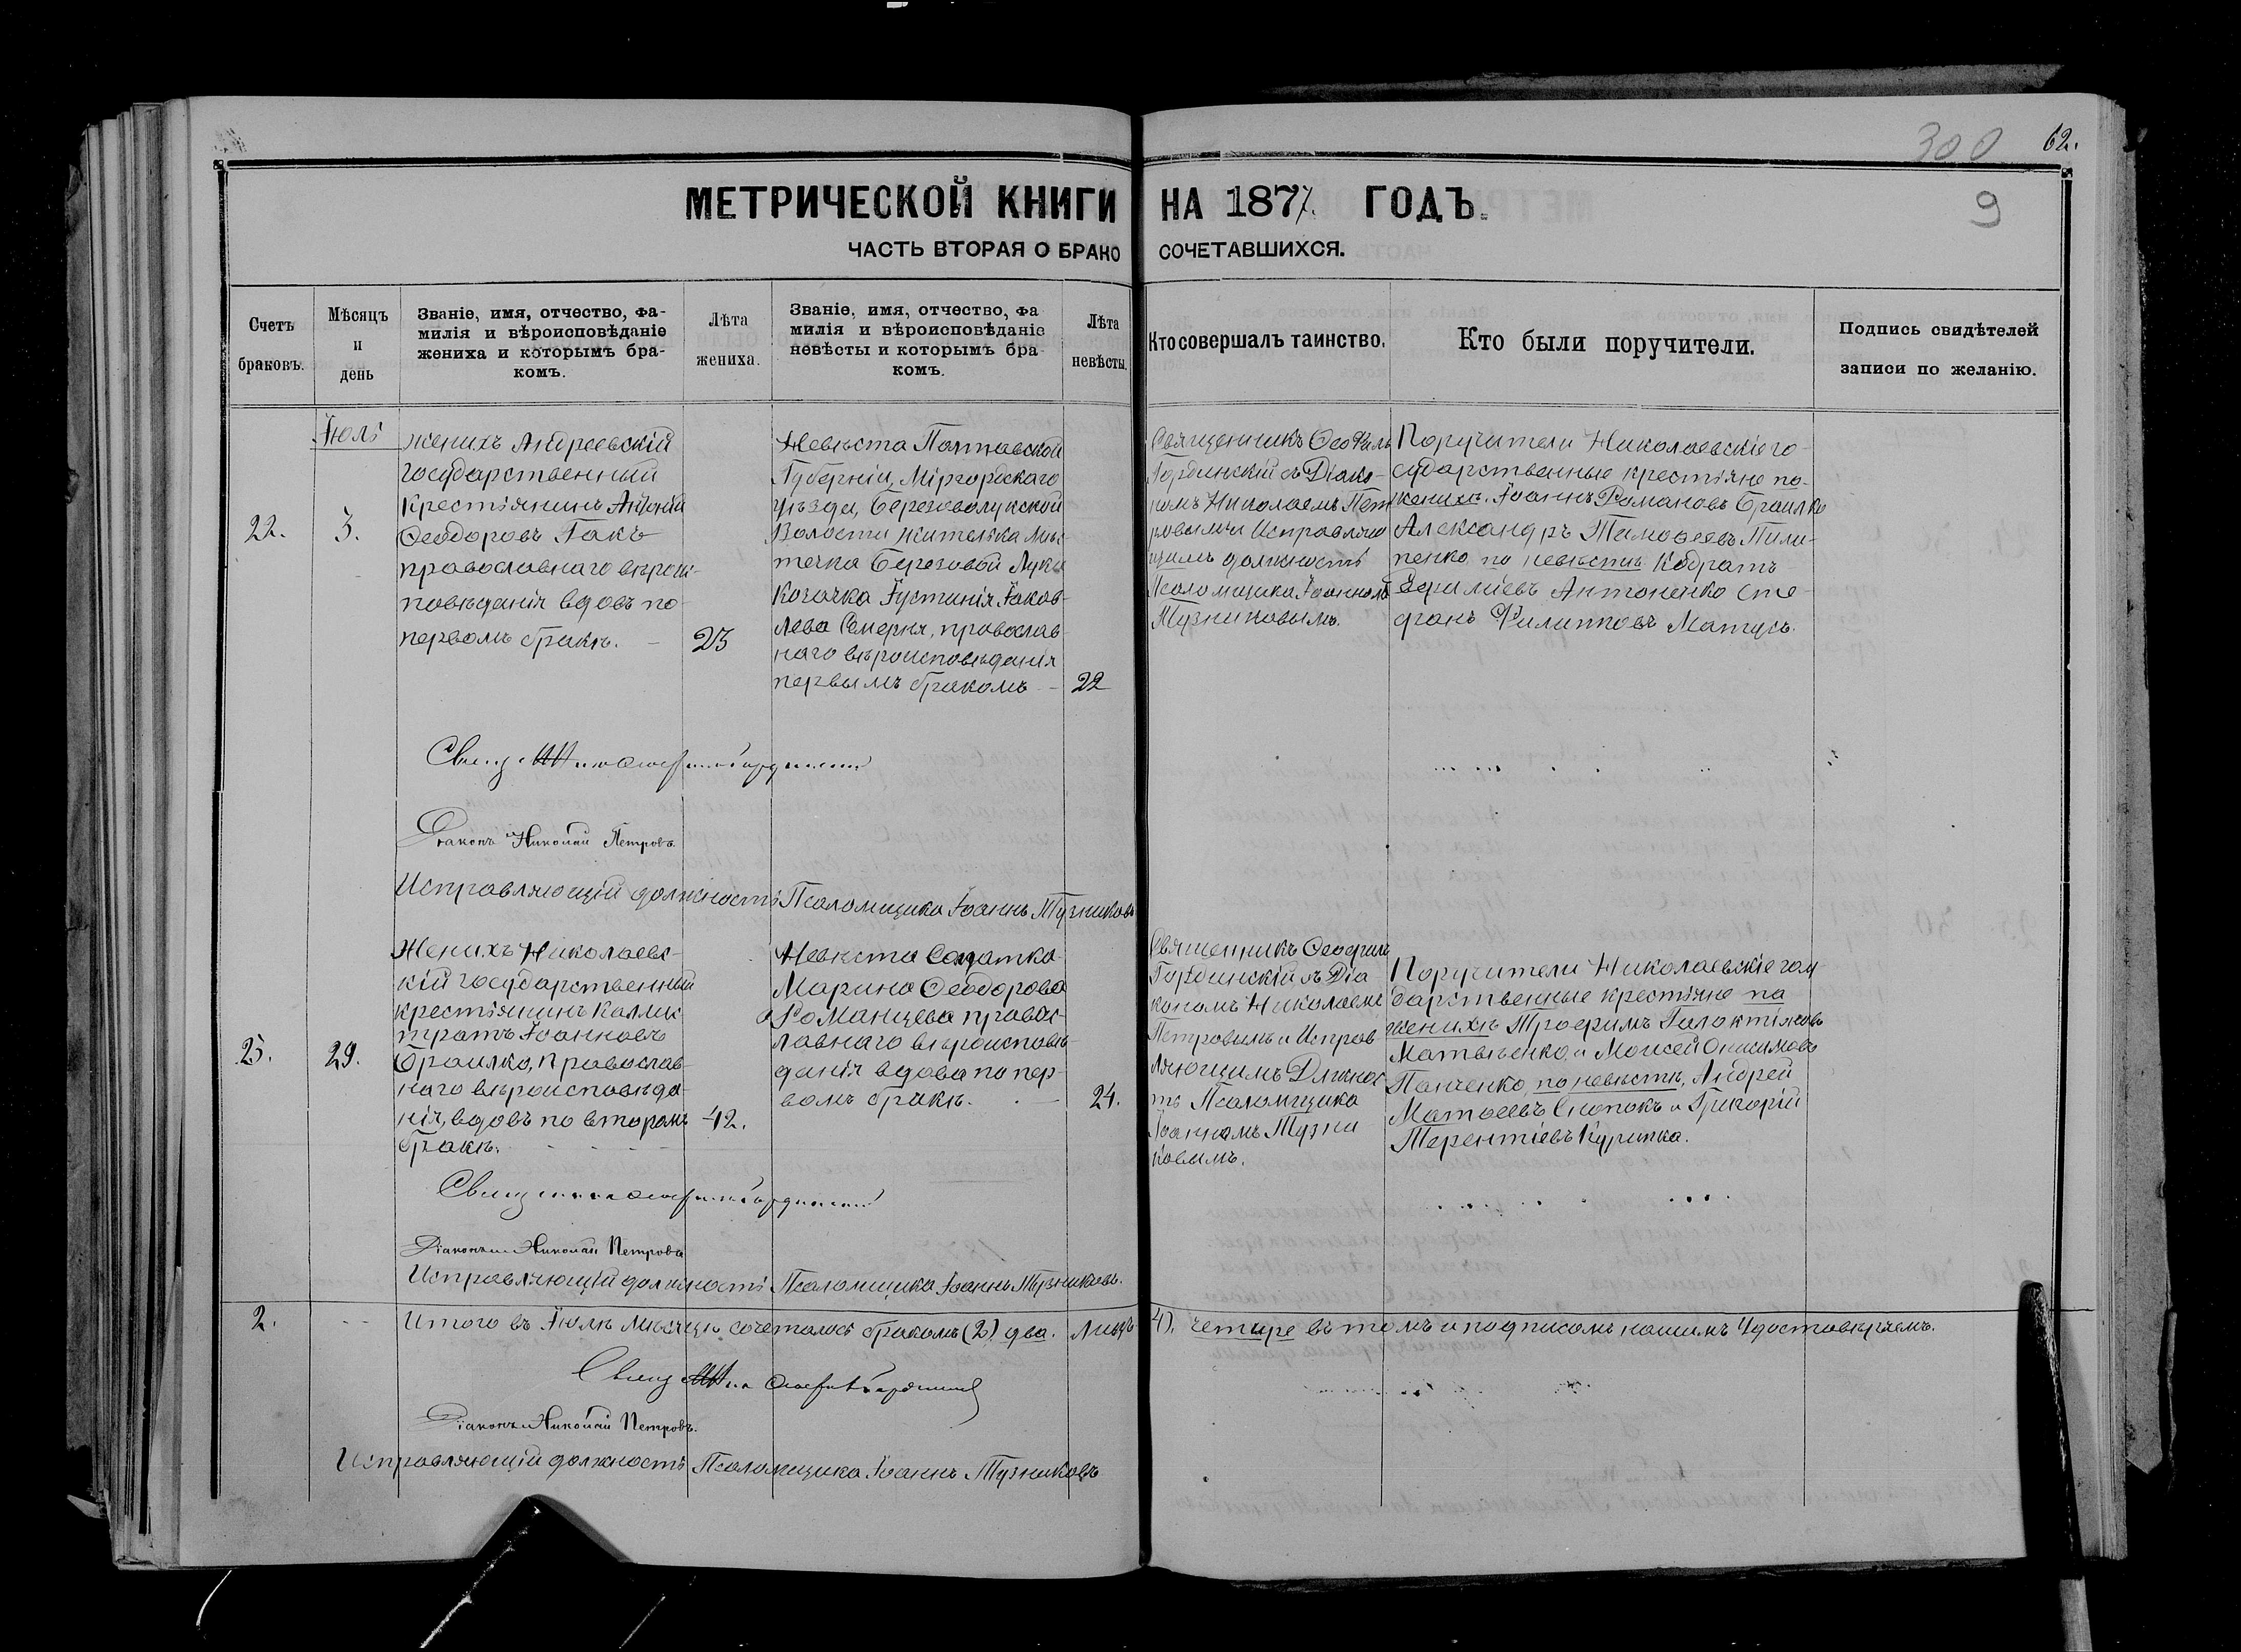 300 62.
МЕТРИЧЕСКОЙ КНИГИ НА 1877. ГОДЪ.
9
ЧАСТЬ ВТОРАЯ О БРАКО СОЧЕТАВШИХСЯ.
Счетъ браковъ.
Мѣсяцъ и день
Званіе, имя, отчество, фа-
милія и вѣроисповѣданіе
жениха и которымъ бра-
комъ.
Лѣта жениха.
Званіе, имя, отчество, фа
милія и вѣроисповѣданіе
невѣсты и которымъ бра
комъ.
Лѣта невѣсты.
Кто совершалъ таинство.
Кто были поручители.
Подпись свидѣтелей
записи по желанію.
Іюль
22.
3.
женихъ Андреевскій
государственный
крестьянинъ Антоній
Ѳеодоровъ Гакъ
православнаго вѣроис-
повѣданія вдовъ по
первомъ бракѣ.
23
Невѣста Полтавской
Губерніи, Міргородскаго
уѣзда, Березоволукской
Волости жителька мѣс
течка Березовой Луки
козачка Іустинія Іаков-
лева Семерня, православ
наго вѣроисповѣданія
первымъ бракомъ
22
Священникъ Ѳеофилъ
Гординскій съ Діако-
номъ Николаемъ Пет
ровымъ и Исправляю
щимъ должность
Псаломщика Іоанномъ
Тузниковымъ.
Поручители Николаевскіе го-
сударственные крестьяне по-
женихѣ, Іоаннъ Романовъ Браилко
Александръ Тимоѳеевъ Пили-
пенко, по невѣстѣ Кодратъ
Антоненко Сте-
фанъ Филипповъ Матусь.
Діаконъ Николай Петровъ.
Исправляющій должность Псаломщика Іоаннъ Тузниковъ
23.
29.
Женихъ Николаевс-
кій государственный
крестьянинъ Калис
тратъ Іоанновъ
Браилко, православ-
наго вѣроисповѣда-
нія, вдовъ по второмъ
бракѣ.
42.
Невѣста Солдатка
Марина Ѳеодорова
Романцева правос-
лавнаго вѣроисповѣ-
данія вдова по пер-
вомъ бракѣ.
24.
Священникъ Ѳеофилъ
Гординскій съ Діа
кономъ Николаемъ
Петровымъ и Исправ
ляющимъ Должнос
ть Псаломщика
Іоанномъ Тузни
ковымъ.
Поручители Николаевскіе госу
дарственные крестьяне по
женихѣ Трофимъ Галактіоновъ
Матвѣенко, и Моисей Онисимовъ
Панченко, по невѣстѣ, Андрей
Матѳеевъ Снопокъ и Григорій
Терентіевъ Курипка.
Діаконъ Николай Петровъ
Исправляющій должность Псаломщика Іоаннъ Тузниковъ.
2.
Итого въ Іюлѣ мѣсяцѣ сочеталось бракомъ (2) два. Лицъ 4). четыре въ томъ и подписомъ нашимъ Удостовѣряемъ.
Діаконъ Николай Петровъ.
Исправляющій должность Псаломщика Іоаннъ Тузниковъ